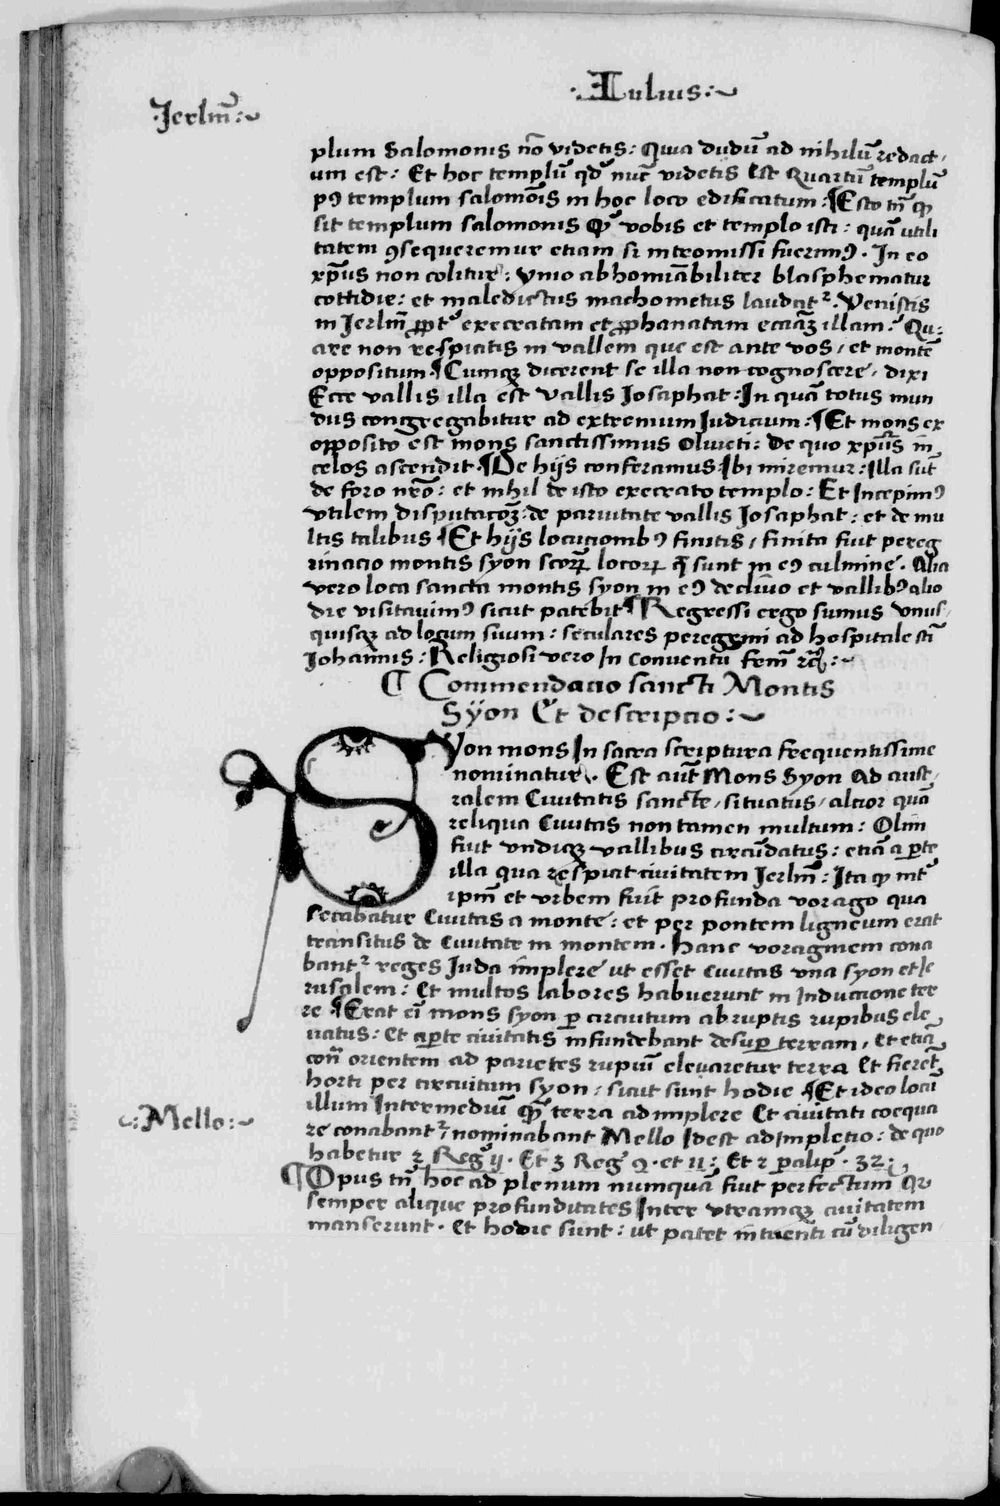 ·Iulius:~
·Jerlm̄:~
plum Salomonis nō videtis: Quia dudū ad nihilū redact,
um est: Et hoc templū qd̄ nūc videtis Est Quartū templū
pꝰ templum salomōis in hoc loco edificatum: ¶Esto tn̄ ꝙ
sit templum salomonis Qͥ vobis et templo isti: quā utili
tatem ꝯsequeremur etiam si intromissi fuerimꝰ. In eo
xp̄us non colitur: ymo abhomīabiliter blasphematur
cottidie: et maledictus machometus laudatᷣ. Venistis
in Jerlm̄ ꝓpt᷑ execratam et ꝓphanatam eccāꝫ illam: Qu:
are non respicitis in vallem que est ante vos, et montē
oppositum ¶Cumqꝫ dicerent se illa non cognoscere, dixi
Ecce vallis illa est vallis Josaphat: In quā totus mun
dus congregabitur ad extremum Judicium: ¶Et mons ex
opposito est mons sanctissimus Oliueti: De quo xp̄us in
celos ascendit. ¶De hijs conferamus Ibi miremur: Illa sūt
de foro nr̄o: et nihil de isto execrato templo: Et Incepimꝰ
vtilem disputacōꝫ: de paruitate vallis Josaphat: et de mu
ltis talibus ¶Et hijs locucionibꝰ finitis, finita fuit pereg
rinacio montis syon scōꝝ locoꝝ q̄ sunt in eꝰ culmine. Alia
vero loca sancta montis syon in eꝰ decliuo et vallibꝰ alio
die visitauimꝰ sicut patebit ¶Regressi ergo sumus vnus,
quisqꝫ ad locum suum: seculares peregrini ad hospitale sc̄i
Johannis: Religiosi vero In conuentu frm̄ rc̄ꝫ:~
¶ Commendacio sancti Montis
Syon Et descripcio:~
Syon mons In sacra scriptura frequentissime
nominatur. Est aūt Mons Syon Ad aust,
ralem Ciuitatis sancte, situatus, alcior quā
reliqua Ciuitas non tamen multum: Olim
fuit vndiqꝫ vallibus circūdatus: etiā a ꝑte
illa qua respicit ciuitatem Jerlm̄: Ita ꝙ int᷑
ipm̄ et vrbem fuit profunda vorago qua
secabatur Ciuitas a monte: et per pontem ligneum erat
transitus de Ciuitate in montem. Hanc voraginem cona
bantᷣ reges Juda implere ut esset Ciuitas vna syon et Je
rusalem: Et multos labores habuerunt in Inductione ter
re ¶Erat eī mons syon ꝑ circuitum abruptis rupibus ele,
uatus: Et a ꝑte ciuitatis infundebant desuꝑ terram, Et etiā
con̄ orientem ad parietes rupiū eleuaretur terra Et fierēt
horti per circuitum syon, sicut sunt hodie ¶Et ideo locū
illum Intermediū Quē terra adimplere Et ciuitati coequa
re conabantᷣ, nominabant Mello Idest adimpletio: de quo
habetur 2 Reg͛ ij. Et 3 Reg͛ 9. et 11: Et 2 ꝑalip̄. 32:,
·:Mello:~
¶Opus tn̄ hoc ad plenum numquā fuit perfectum Qr
semper alique profunditates Inter vtramqꝫ ciuitatem
manserunt. Et hodie sunt: ut patet intuenti cū diligen